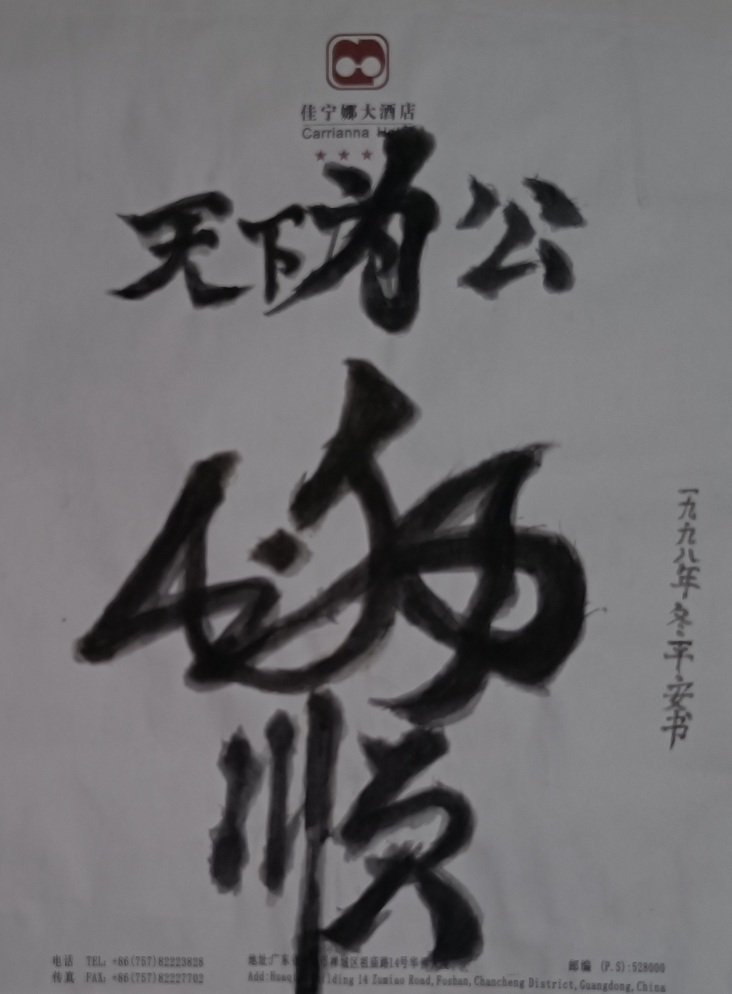 佳宁娜大酒店
Carrianna
天下为公
顺
一九九八年冬平安书
电话 TEL: +86(757)82223828
传真 FAX: +86(757)82227702
地址:广东 禅城区祖庙路14号华
Add: Building 14 Zumiao Road, Foshan, Chancheng District, Guangdong, China
邮编 (P.S):528000